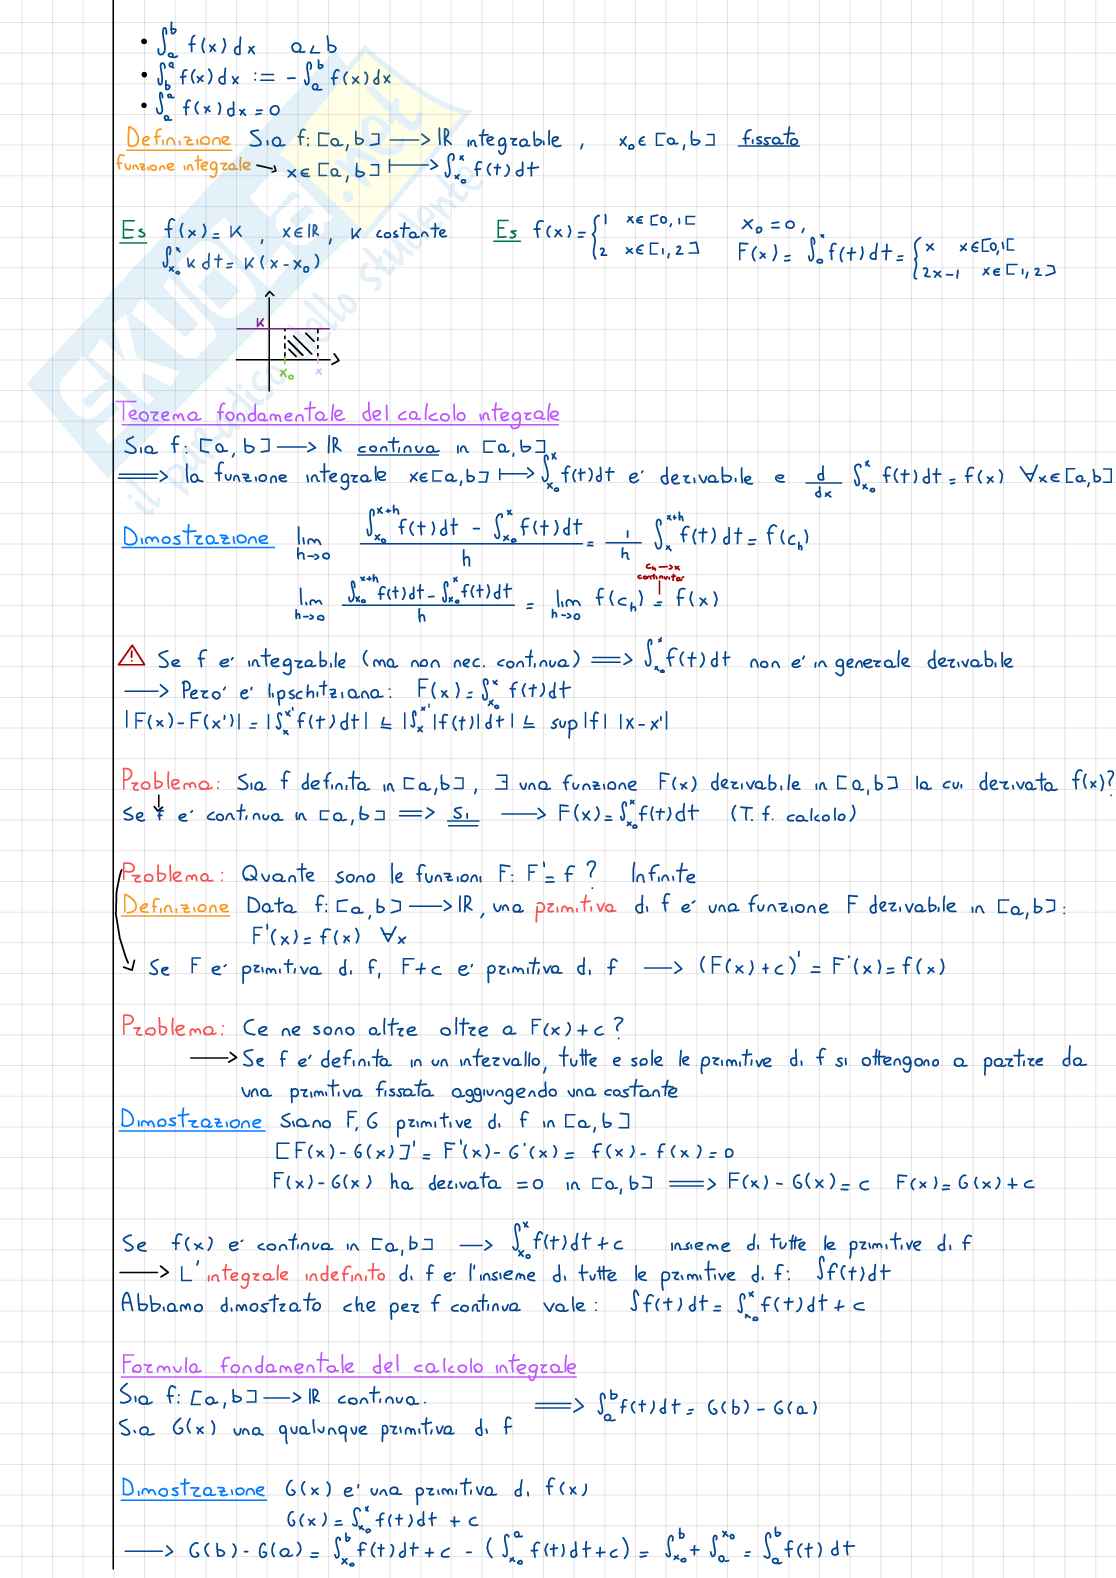 • ∫_a^b f(x)dx a<b
• ∫_b^a f(x)dx := -∫_a^b f(x)dx
• ∫_a^a f(x)dx = 0
Definizione Sia f: [a,b] → IR integrabile, x₀∈[a,b] fissato
funzione integrale → x∈[a,b] ↦ ∫_{x₀}^x f(t)dt
Es f(x)=K, x∈IR, K costante
∫_{x₀}^x K dt = K(x-x₀)
Es f(x)= { 1 x∈[0,1[ 2 x∈[1,2] x₀=0,
F(x)= ∫_0^x f(t)dt = { x x∈[0,1[ 2x-1 x∈[1,2]
K
x₀ x
Teorema fondamentale del calcolo integrale
Sia f: [a,b] → IR continua in [a,b]
⟹ la funzione integrale x∈[a,b] ↦ ∫_{x₀}^x f(t)dt e' derivabile e d/dx ∫_{x₀}^x f(t)dt = f(x) ∀x∈[a,b]
Dimostrazione lim_{h→0} (∫_{x₀}^{x+h} f(t)dt - ∫_{x₀}^x f(t)dt)/h = 1/h ∫_x^{x+h} f(t)dt = f(c_h)
c_h → x
continuita'
lim_{h→0} (∫_{x₀}^{x+h} f(t)dt - ∫_{x₀}^x f(t)dt)/h = lim_{h→0} f(c_h) = f(x)
⚠ Se f e' integrabile (ma non nec. continua) ⟹ ∫_{x₀}^x f(t)dt non e' in generale derivabile
→ Pero' e' lipschitziana: F(x)=∫_{x₀}^x f(t)dt
|F(x)-F(x')| = |∫_x^{x'} f(t)dt| ≤ |∫_x^{x'} |f(t)|dt| ≤ sup|f| |x-x'|
Problema: Sia f definita in [a,b], ∃ una funzione F(x) derivabile in [a,b] la cui derivata f(x)?
Se f e' continua in [a,b] ⟹ Si → F(x)=∫_{x₀}^x f(t)dt (T. f. calcolo)
Problema: Quante sono le funzioni F: F'=f? Infinite
Definizione Data f: [a,b] → IR, una primitiva di f e' una funzione F derivabile in [a,b]:
F'(x)=f(x) ∀x
Se F e' primitiva di f, F+c e' primitiva di f → (F(x)+c)' = F'(x)=f(x)
Problema: Ce ne sono altre oltre a F(x)+c?
→ Se f e' definita in un intervallo, tutte e sole le primitive di f si ottengono a partire da
una primitiva fissata aggiungendo una costante
Dimostrazione Siano F,G primitive di f in [a,b]
[F(x)-G(x)]' = F'(x)-G'(x) = f(x)-f(x)=0
F(x)-G(x) ha derivata =0 in [a,b] ⟹ F(x)-G(x)=c F(x)=G(x)+c
Se f(x) e' continua in [a,b] → ∫_{x₀}^x f(t)dt+c insieme di tutte le primitive di f
→ L'integrale indefinito di f e' l'insieme di tutte le primitive di f: ∫f(t)dt
Abbiamo dimostrato che per f continua vale: ∫f(t)dt = ∫_{x₀}^x f(t)dt+c
Formula fondamentale del calcolo integrale
Sia f: [a,b] → IR continua.
Sia G(x) una qualunque primitiva di f
⟹ ∫_a^b f(t)dt = G(b)-G(a)
Dimostrazione G(x) e' una primitiva di f(x)
G(x)=∫_{x₀}^x f(t)dt + c
→ G(b)-G(a) = ∫_{x₀}^b f(t)dt+c - (∫_{x₀}^a f(t)dt+c) = ∫_{x₀}^b + ∫_a^{x₀} = ∫_a^b f(t) dt
SKUOLA.net
il paradiso dello studente